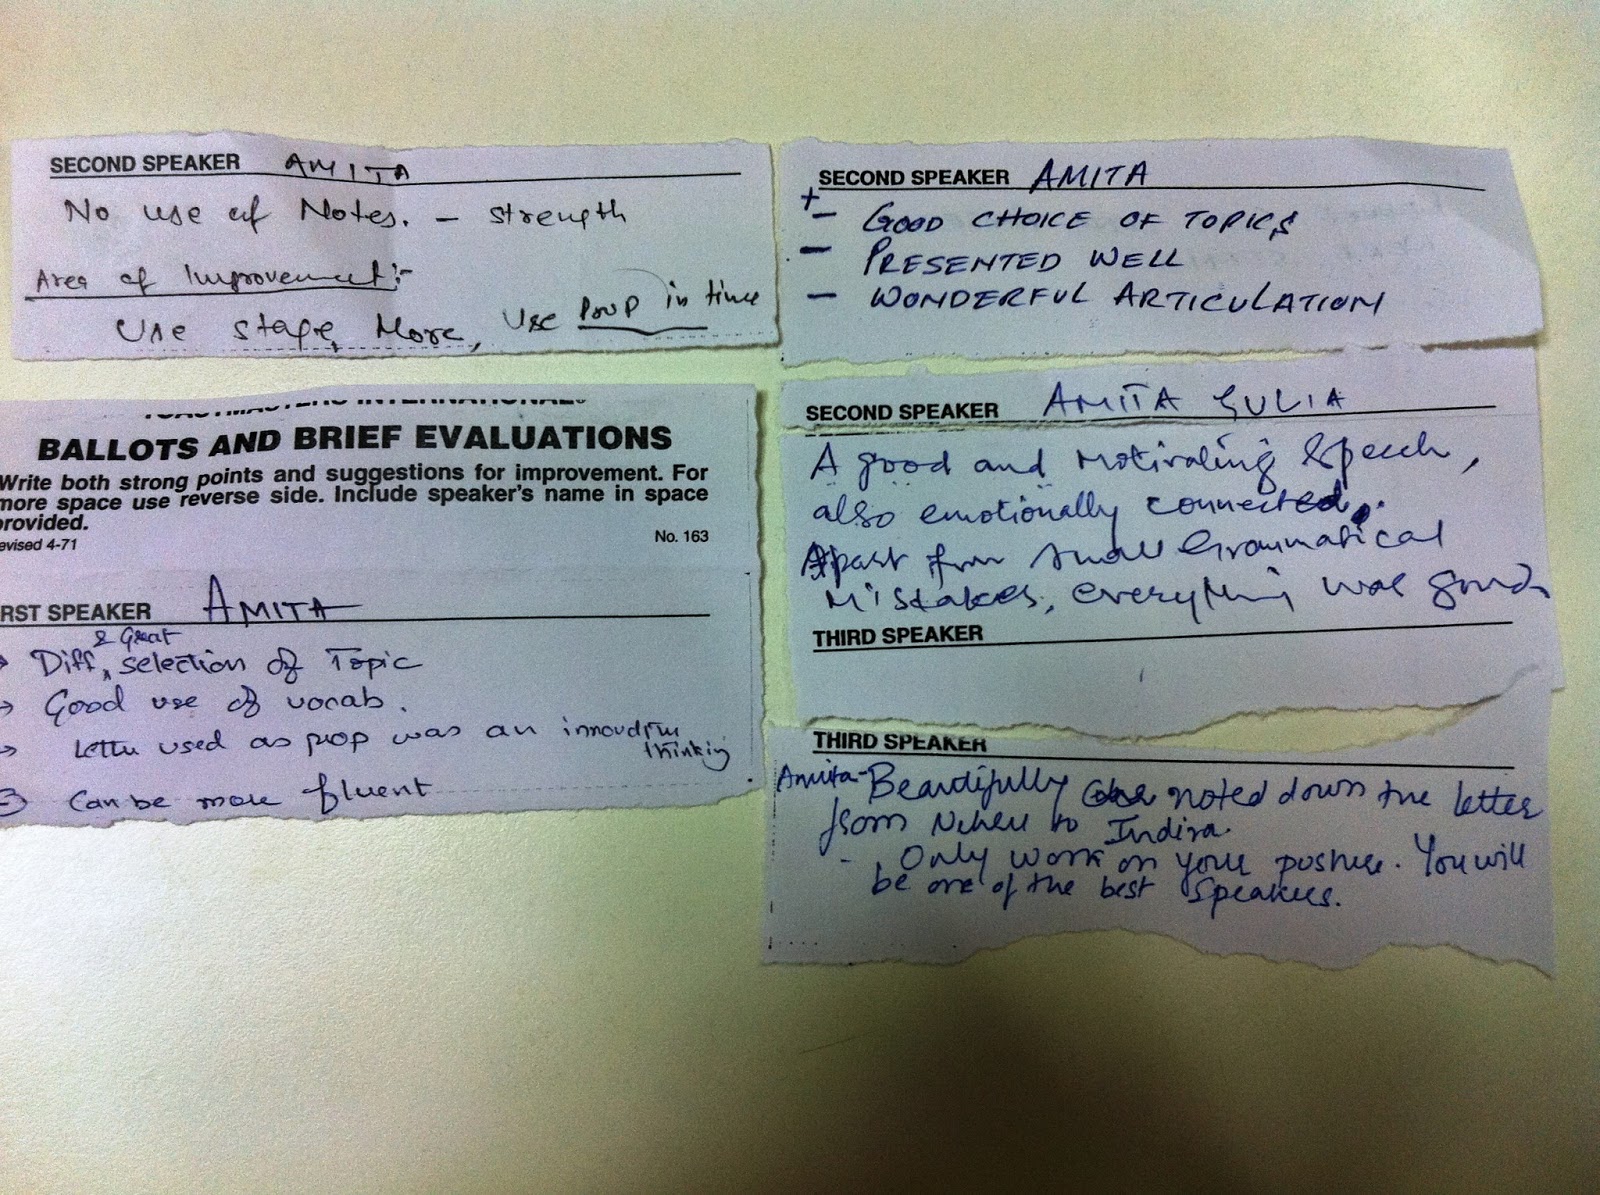 SECOND SPEAKER AMITA
No use of Notes. - strength
Area of Improvement:-
Use stage More, Use Prop in time
TOASTMASTERS INTERNATIONAL®
BALLOTS AND BRIEF EVALUATIONS
Write both strong points and suggestions for improvement. For
more space use reverse side. Include speaker's name in space
provided.
evised 4-71 No. 163
RST SPEAKER AMITA
→ Diff & Great selection of Topic
→ Good use of vocab.
→ Letter used as prop was an
thinking
Can be more fluent
SECOND SPEAKER AMITA
+
- GOOD CHOICE OF TOPICS
- PRESENTED WELL
- WONDERFUL ARTICULATION
SECOND SPEAKER AMITA GULIA
A good and Motivating Speech,
also emotionally connected.
Apart from small Grammatical
Mistakes, everything was good
THIRD SPEAKER
THIRD SPEAKER
Amita- Beautifully noted down the letter
from Nehru to Indira.
- Only work on your posture. You will
be one of the best Speakers.